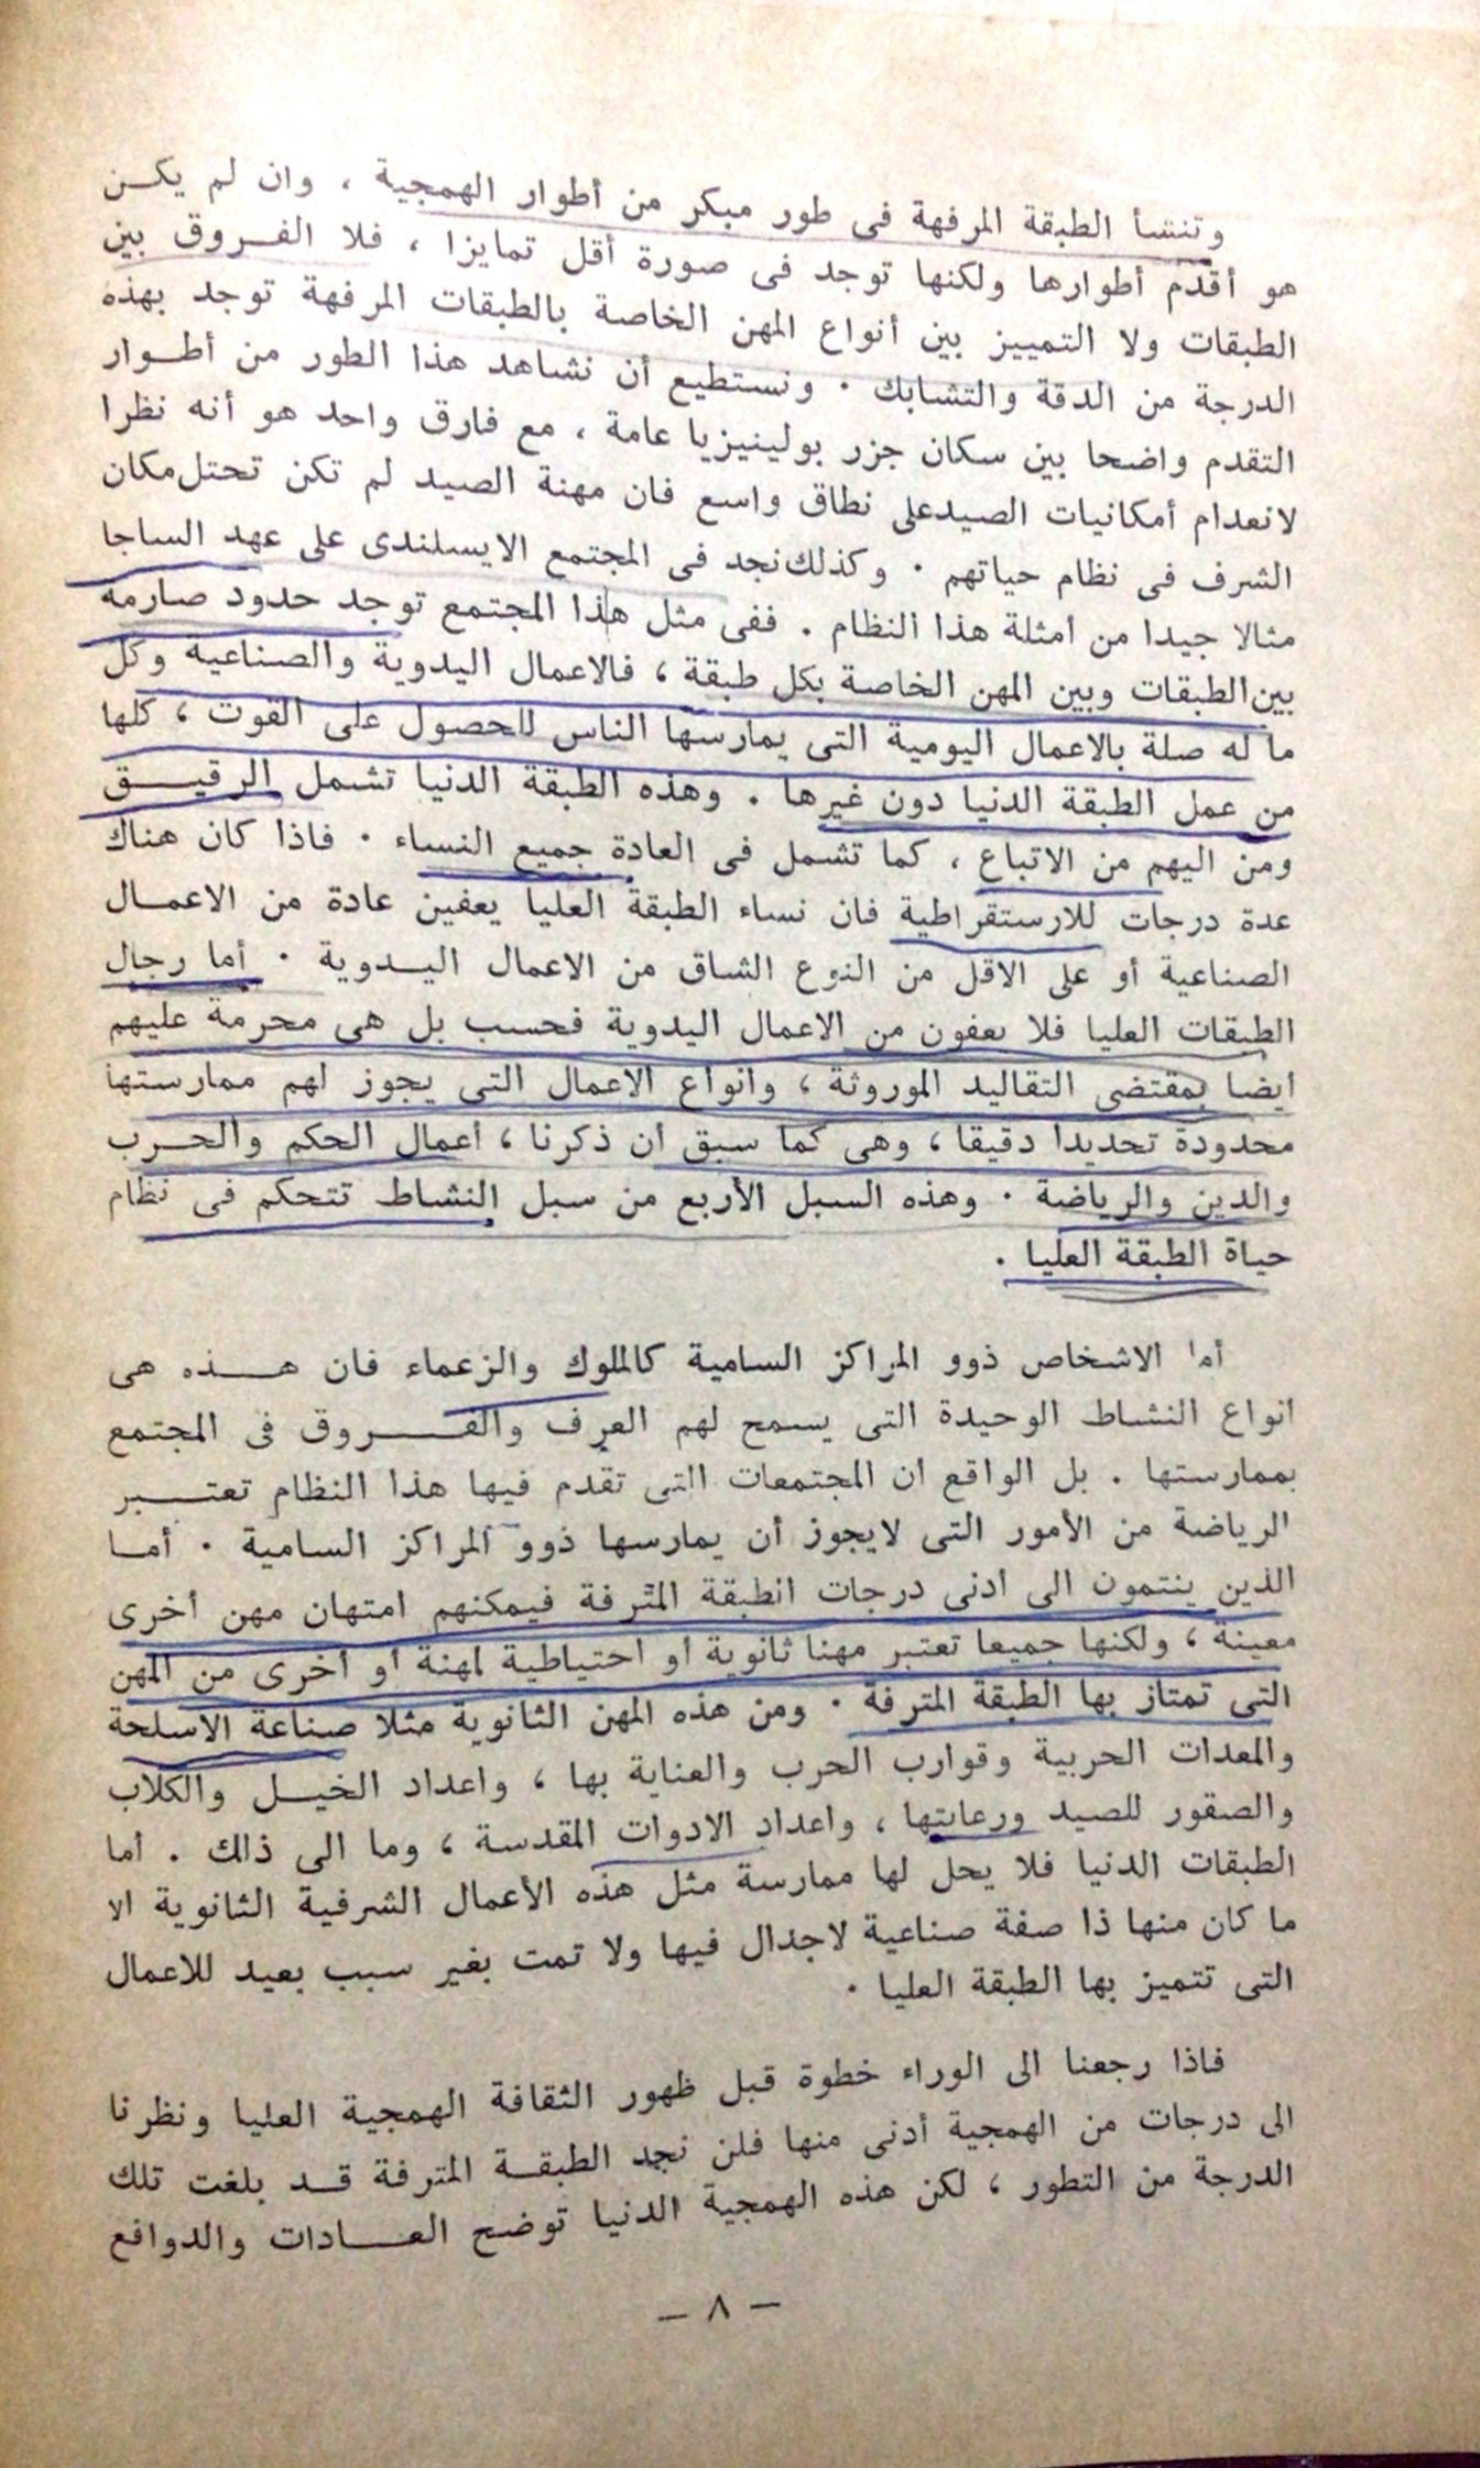 وتنشأ الطبقة المرفهة فى طور مبكر من أطوار الهمجية ، وان لم يكـن
هو أقدم أطوارها ولكنها توجد فى صورة أقل تمايزا ، فلا الفـروق بين
الطبقات ولا التمييز بين أنواع المهن الخاصة بالطبقات المرفهة توجد بهذه
الدرجة من الدقة والتشابك ٠ ونستطيع أن نشاهد هذا الطور من أطـوار
التقدم واضحا بين سكان جزر بولينيزيا عامة ، مع فارق واحد هو أنه نظرا
لانعدام أمكانيات الصيدعلى نطاق واسع فان مهنة الصيد لم تكن تحتل مكان
الشرف فى نظام حياتهم ٠ وكذلك نجد فى المجتمع الايسلندى على عهد الساجا
مثالا جيدا من أمثلة هذا النظام . ففى مثل هذا المجتمع توجد حدود صارمة
بين الطبقات وبين المهن الخاصة بكل طبقة ، فالاعمال اليدوية والصناعية وكل
ما له صلة بالاعمال اليومية التى يمارسها الناس للحصول على القوت ، كلها
من عمل الطبقة الدنيا دون غيرها . وهذه الطبقة الدنيا تشمل الرقيـق
ومن اليهم من الاتباع ، كما تشمل فى العادة جميع النساء ٠ فاذا كان هناك
عدة درجات للارستقراطية فان نساء الطبقة العليا يعفين عادة من الاعمـال
الصناعية أو على الاقل من النوع الشاق من الاعمال اليـدوية ٠ أما رجال
الطبقات العليا فلا يعفون من الاعمال اليدوية فحسب بل هى محرمة عليهم
أيضا بمقتضى التقاليد الموروثة ، وأنواع الاعمال التى يجوز لهم ممارستها
محدودة تحديدا دقيقا ، وهى كما سبق أن ذكرنا ، أعمال الحكم والحـرب
والدين والرياضة ٠ وهذه السبل الأربع من سبل النشاط تتحكم فى نظام
حياة الطبقة العليا .
أما الاشخاص ذوو المراكز السامية كالملوك والزعماء فان هـــذه هى
أنواع النشاط الوحيدة التى يسمح لهم العرف والفـــروق فى المجتمع
بممارستها . بل الواقع ان المجتمعات التى تقدم فيها هذا النظام تعتـــبر
الرياضة من الأمور التى لايجوز أن يمارسها ذوو المراكز السامية ٠ أمـا
الذين ينتمون الى أدنى درجات الطبقة المترفة فيمكنهم امتهان مهن أخرى
معينة ، ولكنها جميعا تعتبر مهنا ثانوية أو احتياطية لمهنة أو أخرى من المهن
التى تمتاز بها الطبقة المترفة ٠ ومن هذه المهن الثانوية مثلا صناعة الاسلحة
والمعدات الحربية وقوارب الحرب والعناية بها ، واعداد الخيـل والكلاب
والصقور للصيد ورعايتها ، واعداد الادوات المقدسة ، وما الى ذلك . أما
الطبقات الدنيا فلا يحل لها ممارسة مثل هذه الأعمال الشرفية الثانوية الا
ما كان منها ذا صفة صناعية لاجدال فيها ولا تمت بغير سبب بعيد للاعمال
التى تتميز بها الطبقة العليا ٠
فاذا رجعنا الى الوراء خطوة قبل ظهور الثقافة الهمجية العليا ونظرنا
الى درجات من الهمجية أدنى منها فلن نجد الطبقـة المترفة قـد بلغت تلك
الدرجة من التطور ، لكن هذه الهمجية الدنيا توضح العـــادات والدوافع
— ٨ —